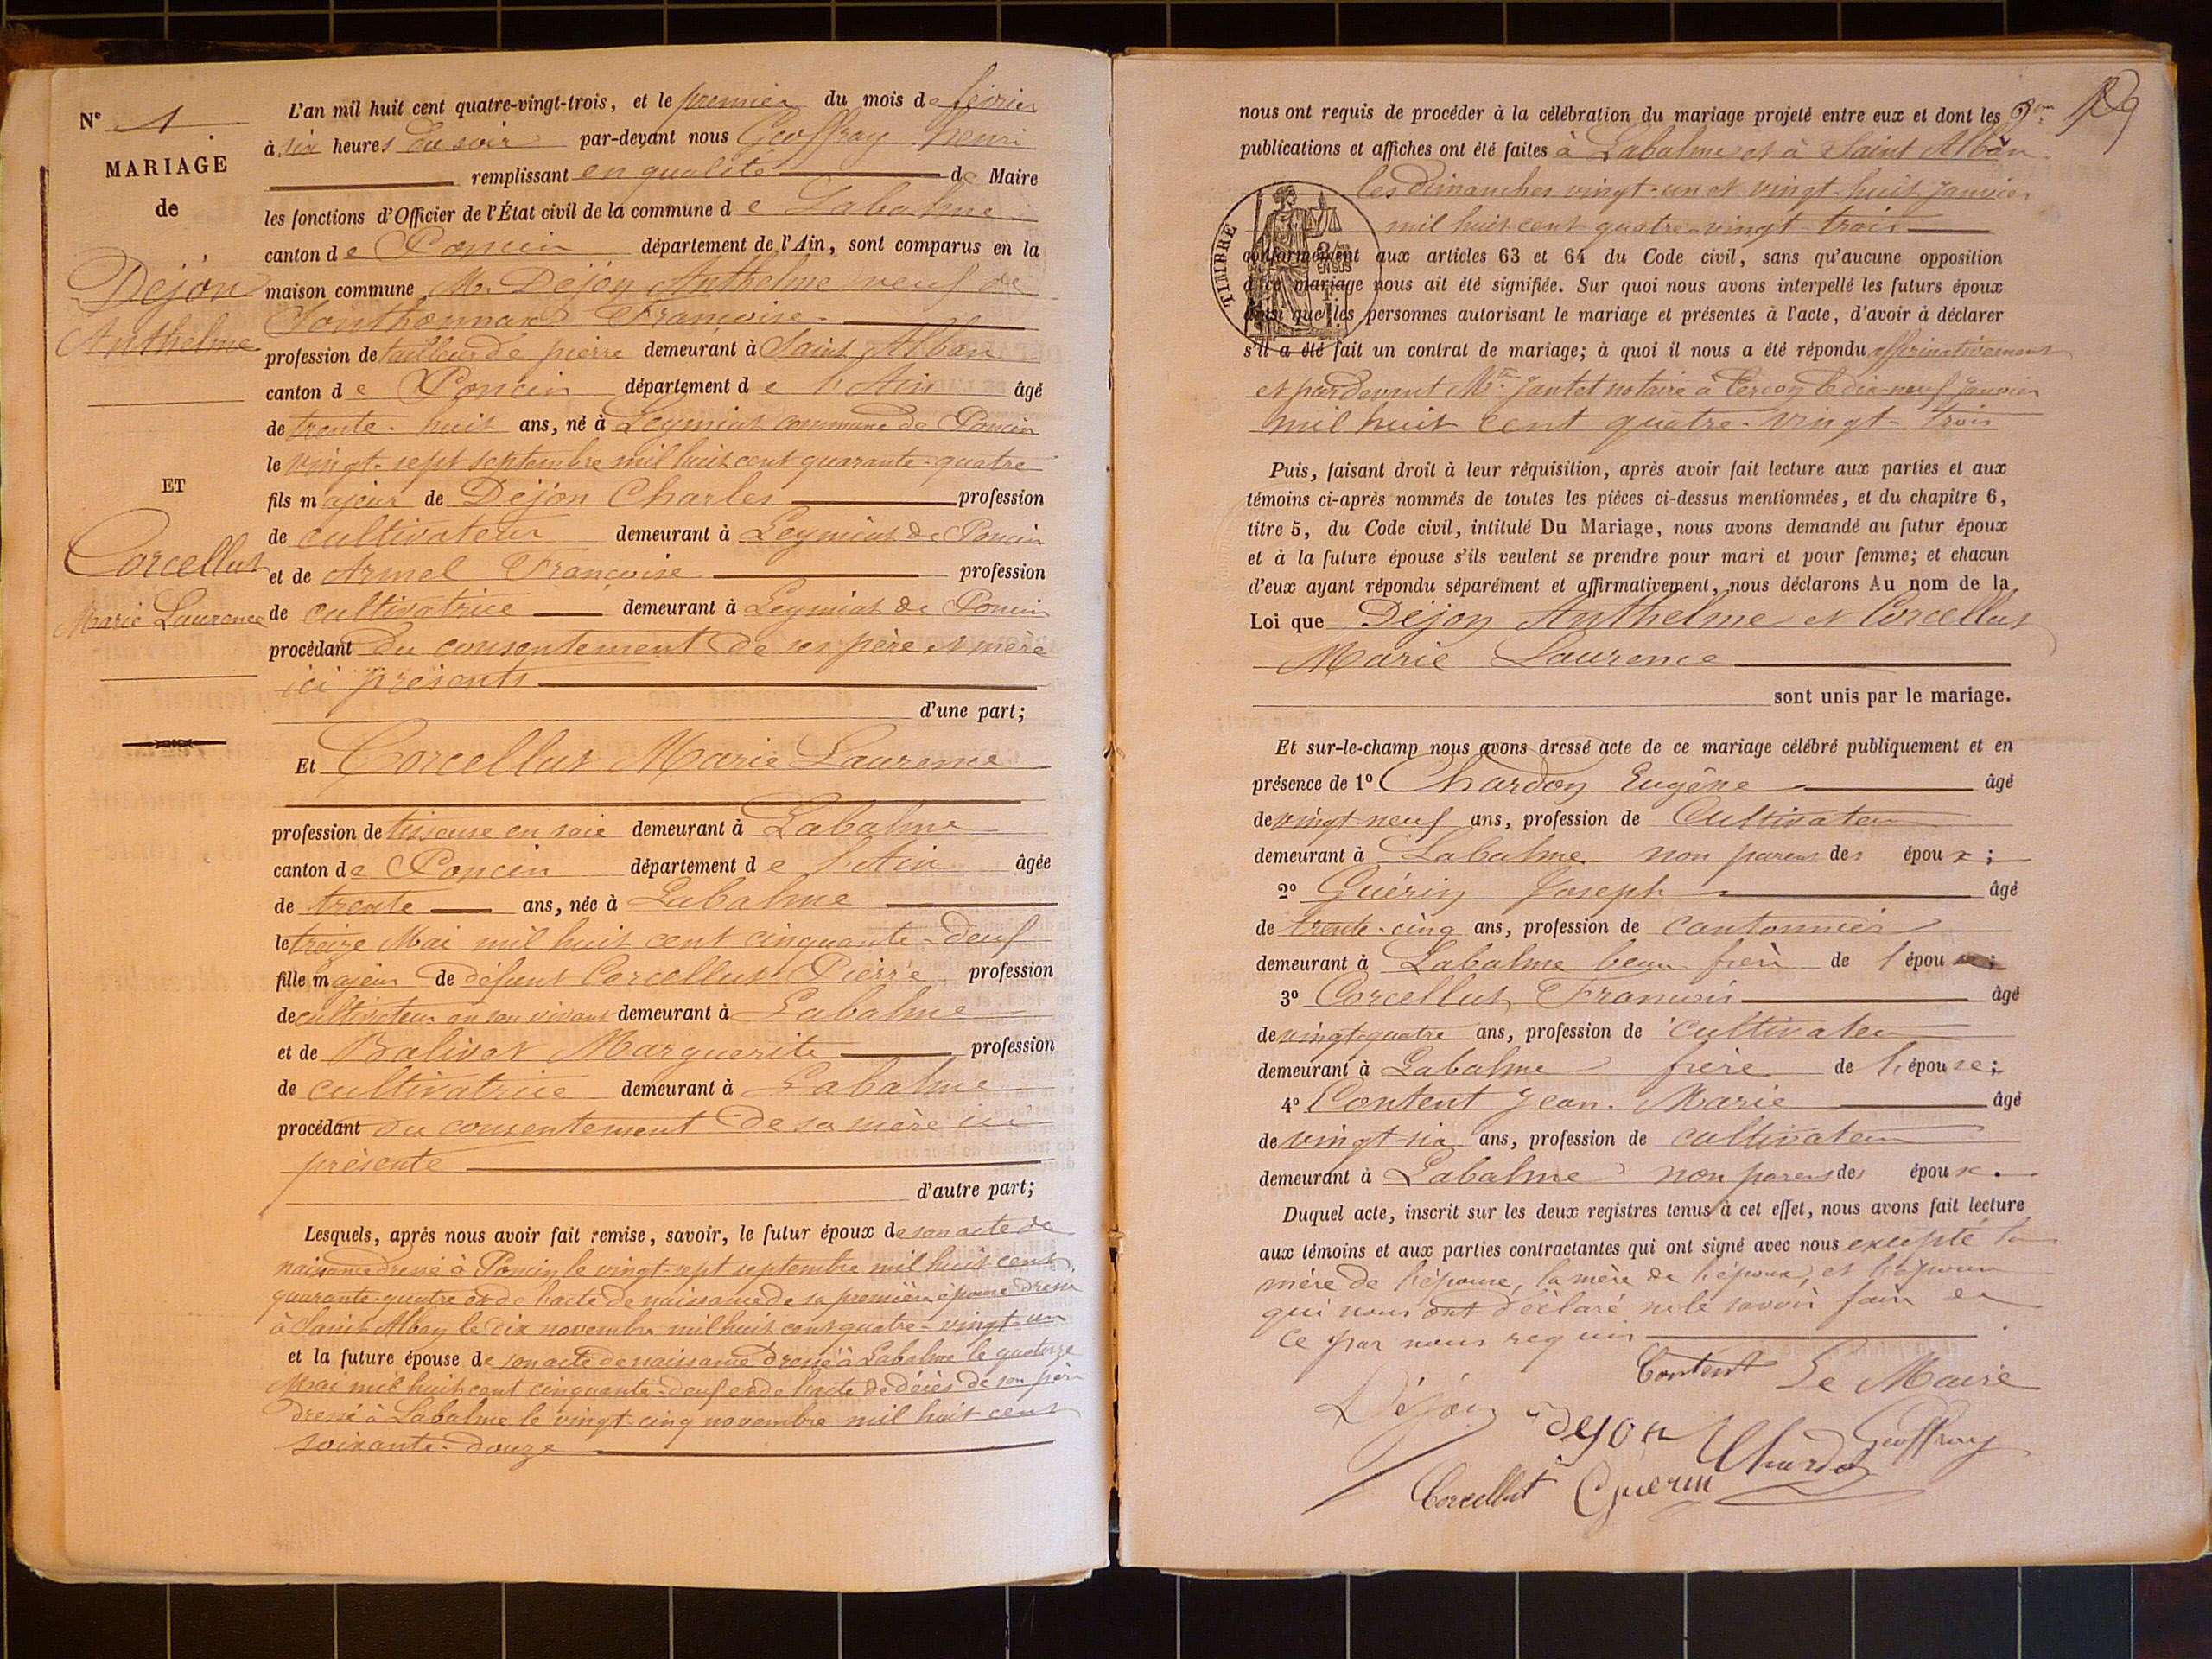 N° 1
MARIAGE
de
Déjon
Anthelme
ET
Corcellut
Marie Laurence
L'an mil huit cent quatre-vingt-trois, et le premier du mois de février
à six heures du soir par-devant nous Geoffray henri
remplissant en qualité de Maire
les fonctions d'Officier de l'État civil de la commune de Labalme
canton de Poncin département de l'Ain, sont comparus en la
maison commune M. Déjon Anthelme veuf de
Françoise
profession de tailleur de pierre demeurant à Saint Alban
canton de Poncin département de l'Ain âgé
de trente-huit ans, né à Leymiat commune de Poncin
le vingt-sept septembre mil huit cent quarante-quatre
fils majeur de Déjon Charles profession
de cultivateur demeurant à Leymiat de Poncin
et de Armel Françoise profession
de cultivatrice demeurant à Leymiat de Poncin
procédant du consentement de ses père et mère
ici présents
d'une part;
Et Corcellut Marie Laurence
profession de tisseuse en soie demeurant à Labalme
canton de Poncin département de l'Ain âgée
de trente ans, née à Labalme
le treize Mai mil huit cent cinquante-deux
fille majeur de défunt Corcellut Pierre profession
de cultivateur en son vivant demeurant à Labalme
et de Balivet Marguerite profession
de cultivatrice demeurant à Labalme
procédant du consentement de sa mère ici
présente
d'autre part;
Lesquels, après nous avoir fait remise, savoir, le futur époux de son acte de
naissance dressé à Poncin le vingt-sept septembre mil huit cent
quarante-quatre et de l'acte de naissance de sa première épouse dressé
à Saint Alban le dix novembre mil huit cent quatre-vingt-un
et la future épouse de son acte de naissance dressé à Labalme le quatorze
Mai mil huit cent cinquante-deux et de l'acte de décès de son père
dressé à Labalme le vingt-cinq novembre mil huit cent
soixante-douze
nous ont requis de procéder à la célébration du mariage projeté entre eux et dont les
publications et affiches ont été faites à Labalme et à Saint Alban
les dimanches vingt-un et vingt-huit Janvier
mil huit cent quatre-vingt-trois
TIMBRE
EN SUS
conformément aux articles 63 et 64 du Code civil, sans qu'aucune opposition
à ce mariage nous ait été signifiée. Sur quoi nous avons interpellé les futurs époux
ainsi que les personnes autorisant le mariage et présentes à l'acte, d'avoir à déclarer
s'il a été fait un contrat de mariage; à quoi il nous a été répondu affirmativement
et pardevant Me Jantet notaire à Cerdon le dix-neuf Janvier
mil huit cent quatre-vingt-trois
Puis, faisant droit à leur réquisition, après avoir fait lecture aux parties et aux
témoins ci-après nommés de toutes les pièces ci-dessus mentionnées, et du chapitre 6,
titre 5, du Code civil, intitulé Du Mariage, nous avons demandé au futur époux
et à la future épouse s'ils veulent se prendre pour mari et pour femme; et chacun
d'eux ayant répondu séparément et affirmativement, nous déclarons Au nom de la
Loi que Déjon Anthelme et Corcellut
Marie Laurence
sont unis par le mariage.
Et sur-le-champ nous avons dressé acte de ce mariage célébré publiquement et en
présence de 1° Chardon Eugène âgé
de vingt-neuf ans, profession de Cultivateur
demeurant à Labalme non parent des époux;
2° Guérin Joseph âgé
de trente-cinq ans, profession de cantonnier
demeurant à Labalme beau frère de l'épouse;
3° Corcellut François âgé
de vingt-quatre ans, profession de cultivateur
demeurant à Labalme frère de l'épouse;
4° Content Jean-Marie âgé
de vingt-six ans, profession de cultivateur
demeurant à Labalme non parent des époux.
Duquel acte, inscrit sur les deux registres tenus à cet effet, nous avons fait lecture
aux témoins et aux parties contractantes qui ont signé avec nous excepté la
mère de l'épouse, la mère de l'époux, et l'épouse
qui nous ont déclaré ne le savoir faire de
ce par nous requis
Content Le Maire
Déjon dejon Chardon Geoffray
Corcellut Guérin